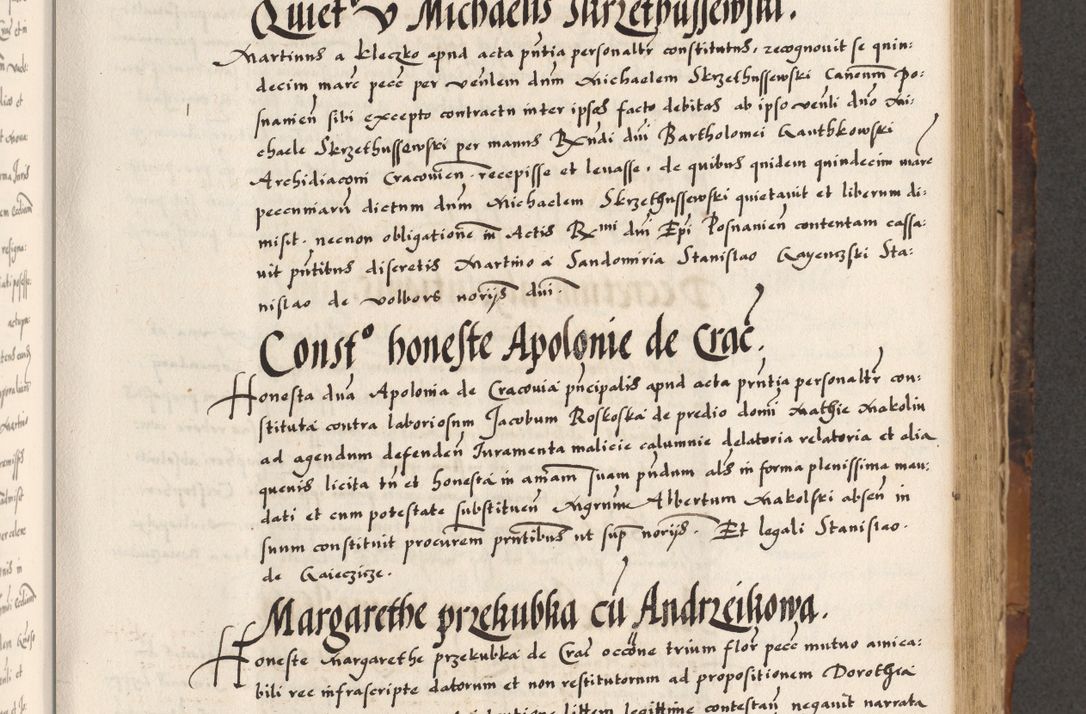 Quiet⁰ v Michaelis Skrzethussewski.
Martinus a Kleczko apud acta pn̄tia personalr̄ constitutus, recognovit se quin:
decim marc pecc̄ per venlem dnm̄ Michaelem Skrzethussewski Canonm̄ Po:
snamien̄ sibi excepto contractu inter ipsos facto debitas ab ipso venli dno Mi:
chaele Skrzethussewski per manus Rx̄ndi dnī Bartholomei Ganthkowski
Archidiaconi Cracovien̄. recepisse et levasse, de quibus quidem quindecim marc̄
pecuniarū dictum dnm̄ Michaelem Skrzethussewski quietavit et liberum di:
misit. necnon obligatione in Actis Rx̄mi dnī Epī Posnanien̄ contentam cassa:
vit pn̄tibus discretis Martino a Sandomiria Stanislao Gayenczski Sta:
nislao de Volbors norīis dnī
Const⁰ honeste Apolonie de Crac̄.
Honesta dna Apolonia de Cracovia pn̄cipalis apud acta prn̄tia personaltr̄ con:
stituta contra laboriosum Jacobum Roskoska de predio domī Mathie Makoliu
ad agendum defenden̄ Iuramenta malicie calumnie delatoria relatoria et alia
quevis licita tn̄ et honesta in amām suam pn̄dum als̄ in forma plenissima man:
dati et cum potestate substituen̄ Mgrum Albertum Makolski absen̄ in
suum constituit procurem̄ prn̄tibus ut sup̄ norīis. Et legali Stanislao
de Gaieczicze.
Margarethe przekubka cū Andrzeikowa.
Honeste Margarethe przekubka de Crac̄ occōne trium flor̄ pecc̄ mutuo amica:
bili rec infrascripte datorum et non restitutorum ad propositionem Dorothia
litem legittime contestan̄ negavit narrata